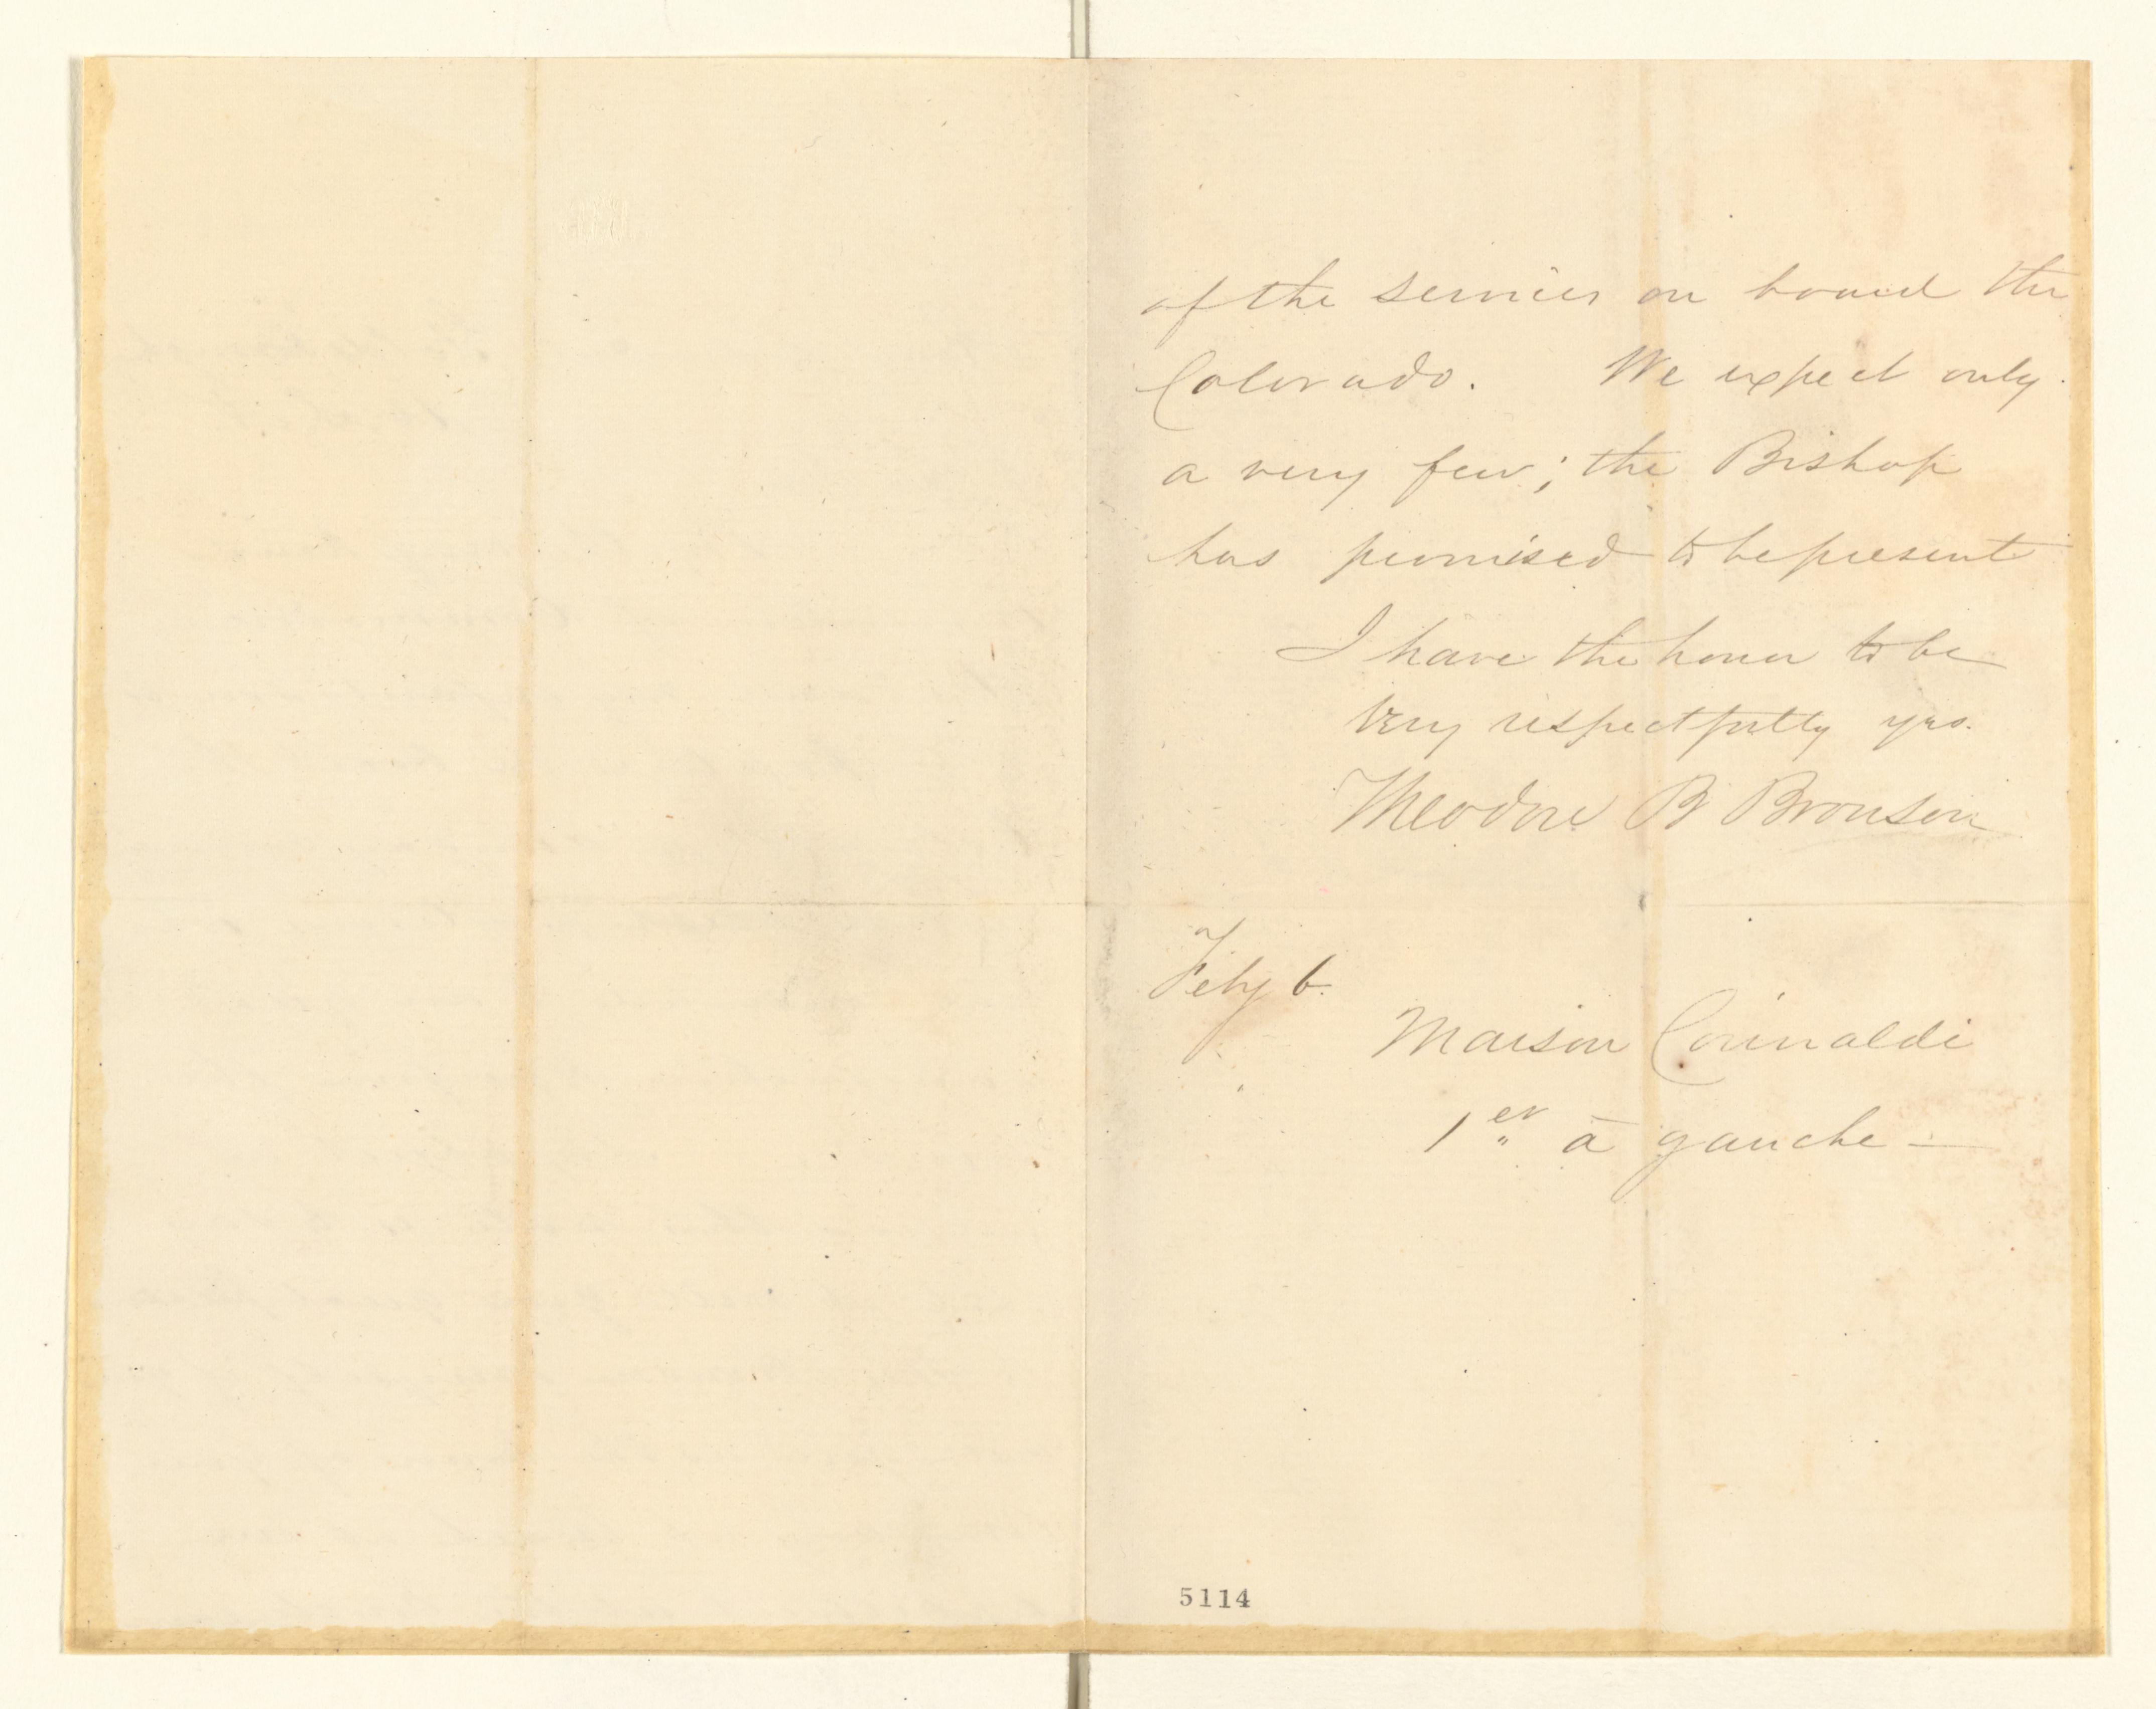 of the services on board the
Colorado. We expect only
a very few; the Bishop
has promised to be present
I have the honor to be
Very respectfully yrs.
Theodore B Bronson
Feby 6.
Maison Corinaldi
1er à gauche —
5114